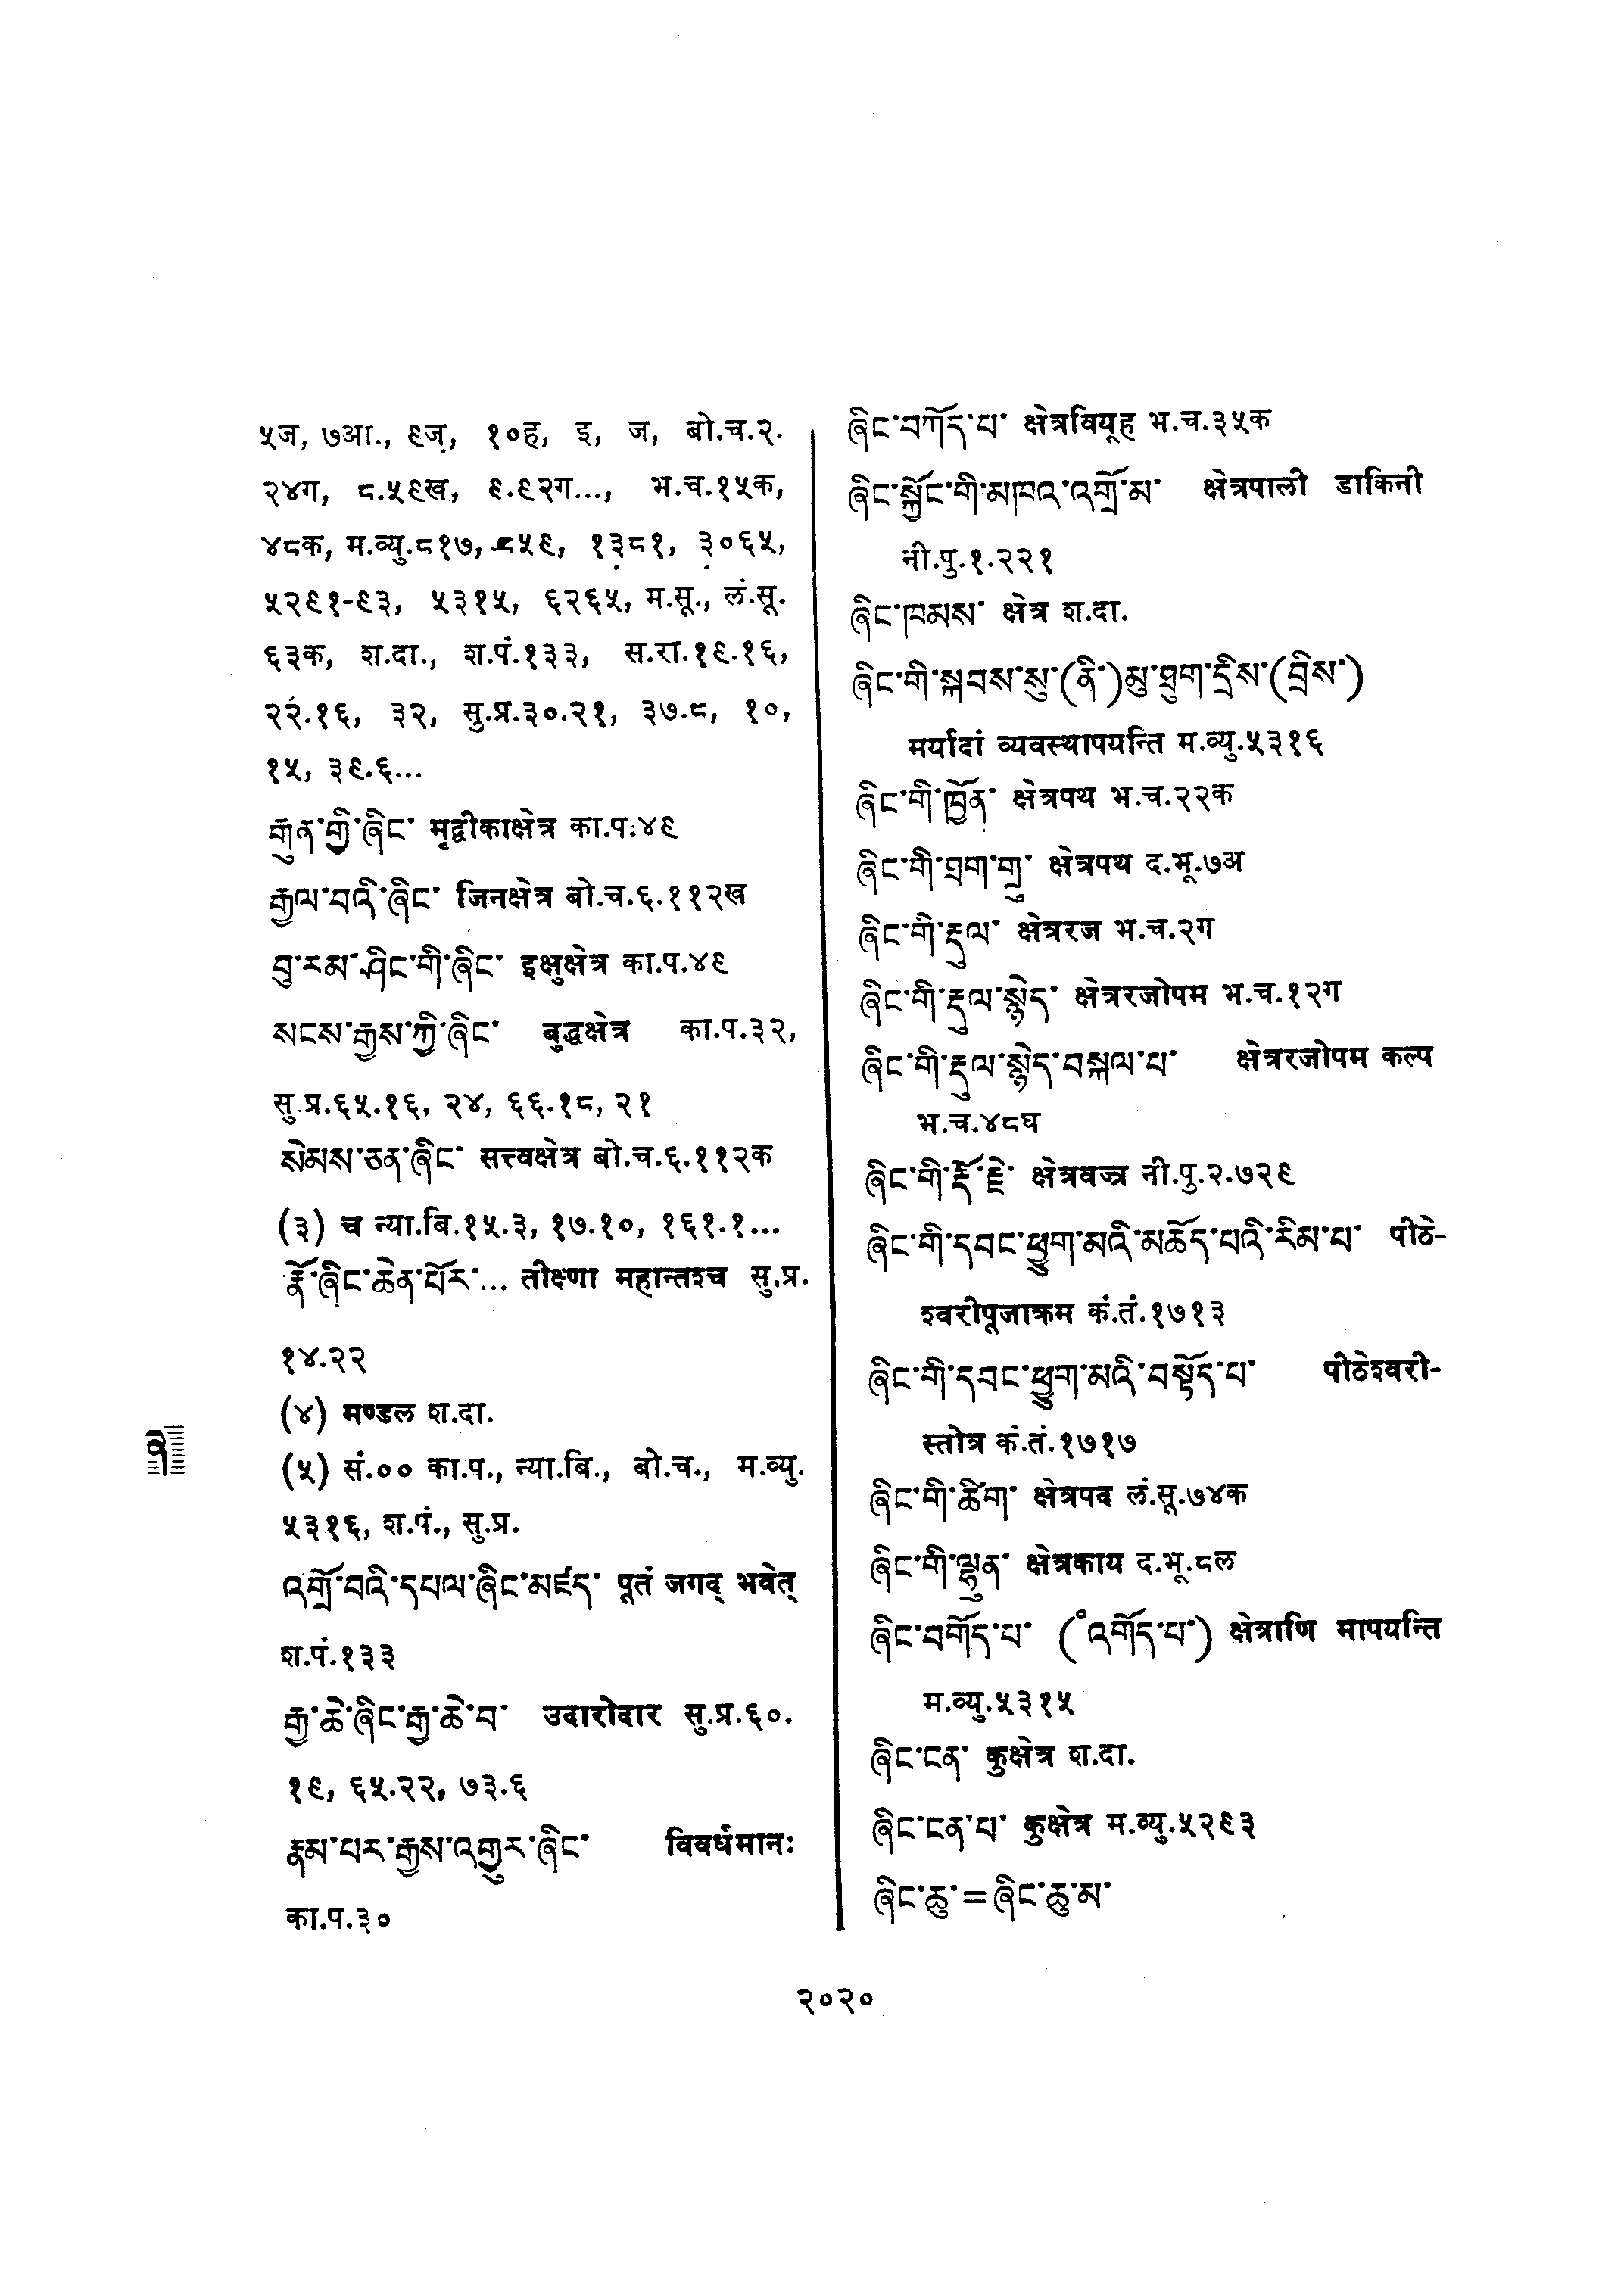 ५ज, ७आ., ९ज़, १०ह, इ, ज, बो.च.२.
२४ग, ८.५९ख, ९.९२ग..., भ.च.१५क,
४८क, म.व्यु.८१७, ८५९, १३८१, ३०६५,
५२९१-९३, ५३१५, ६२६५, म.सू., लं.सू.
६३क, श.दा., श.पं.१३३, स.रा.१९.१६,
२२.१६, ३२, सु.प्र.३०.२१, ३७.८, १०,
१५, ३९.६...
གུན་གྱི་ཞིང་ मृद्वीकाक्षेत्र का.प.४९
རྒྱལ་བའི་ཞིང་ जिनक्षेत्र बो.च.६.११२ख
བུ་རམ་ཤིང་གི་ཞིང་ इक्षुक्षेत्र का.प.४९
སངས་རྒྱས་ཀྱི་ཞིང་ बुद्धक्षेत्र का.प.३२,
सु.प्र.६५.१६, २४, ६६.१८, २१
སེམས་ཅན་ཞིང་ सत्त्वक्षेत्र बो.च.६.११२क
(३) च न्या.बि.१५.३, १७.१०, १६१.१...
རྣོ་ཞིང་ཆེན་པོར་... तीक्ष्णा महान्तश्च सु.प्र.
१४.२२
(४) मण्डल श.दा.
(५) सं.०० का.प., न्या.बि., बो.च., म.व्यु.
५३१६, श.पं., सु.प्र.
འགྲོ་བའི་དཔལ་ཞིང་མཛད་ पूतं जगद् भवेत्
श.पं.१३३
རྒྱ་ཆེ་ཞིང་རྒྱ་ཆེ་བ་ उदारोदार सु.प्र.६०.
१९, ६५.२२, ७३.६
རྣམ་པར་རྒྱས་འགྱུར་ཞིང་ विवर्धमानः
का.प.३०
ཞིང་བཀོད་པ་ क्षेत्रवियूह भ.च.३५क
ཞིང་སྐྱོང་གི་མཁའ་འགྲོ་མ་ क्षेत्रपाली डाकिनी
नी.पु.१.२२१
ཞིང་ཁམས་ क्षेत्र श.दा.
ཞིང་གི་སྐབས་སུ་(ནི་)མུ་ཐུག་དྲིས་(བྲིས་)
मर्यादां व्यवस्थापयन्ति म.व्यु.५३१६
ཞིང་གི་ཁྱོན་ क्षेत्रपथ भ.च.२२क
ཞིང་གི་གྲག་གྲུ་ क्षेत्रपथ द.भू.७अ
ཞིང་གི་རྡུལ་ क्षेत्ररज भ.च.२ग
ཞིང་གི་རྡུལ་སྙེད་ क्षेत्ररजोपम भ.च.१२ग
ཞིང་གི་རྡུལ་སྙེད་བསྐལ་པ་ क्षेत्ररजोपम कल्प
भ.च.४८घ
ཞིང་གི་རྡོ་རྗེ་ क्षेत्रवज्र नी.पु.२.७२९
ཞིང་གི་དབང་ཕྱུག་མའི་མཆོད་པའི་རིམ་པ་ पीठे-
श्वरीपूजाक्रम कं.तं.१७१३
ཞིང་གི་དབང་ཕྱུག་མའི་བསྟོད་པ་ पीठेश्वरी-
स्तोत्र कं.तं.१७१७
ཞིང་གི་ཚིག་ क्षेत्रपद लं.सू.७४क
ཞིང་གི་ལྷུན་ क्षेत्रकाय द.भू.८ल
ཞིང་བགོད་པ་ (°འགོད་པ་) क्षेत्राणि मापयन्ति
म.व्यु.५३१५
ཞིང་ངན་ कुक्षेत्र श.दा.
ཞིང་ངན་པ་ कुक्षेत्र म.व्यु.५२९३
ཞིང་ཆུ་=ཞིང་ཆུ་མ་
ཞ
२०२०